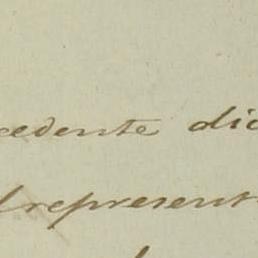 cedente dic
representa